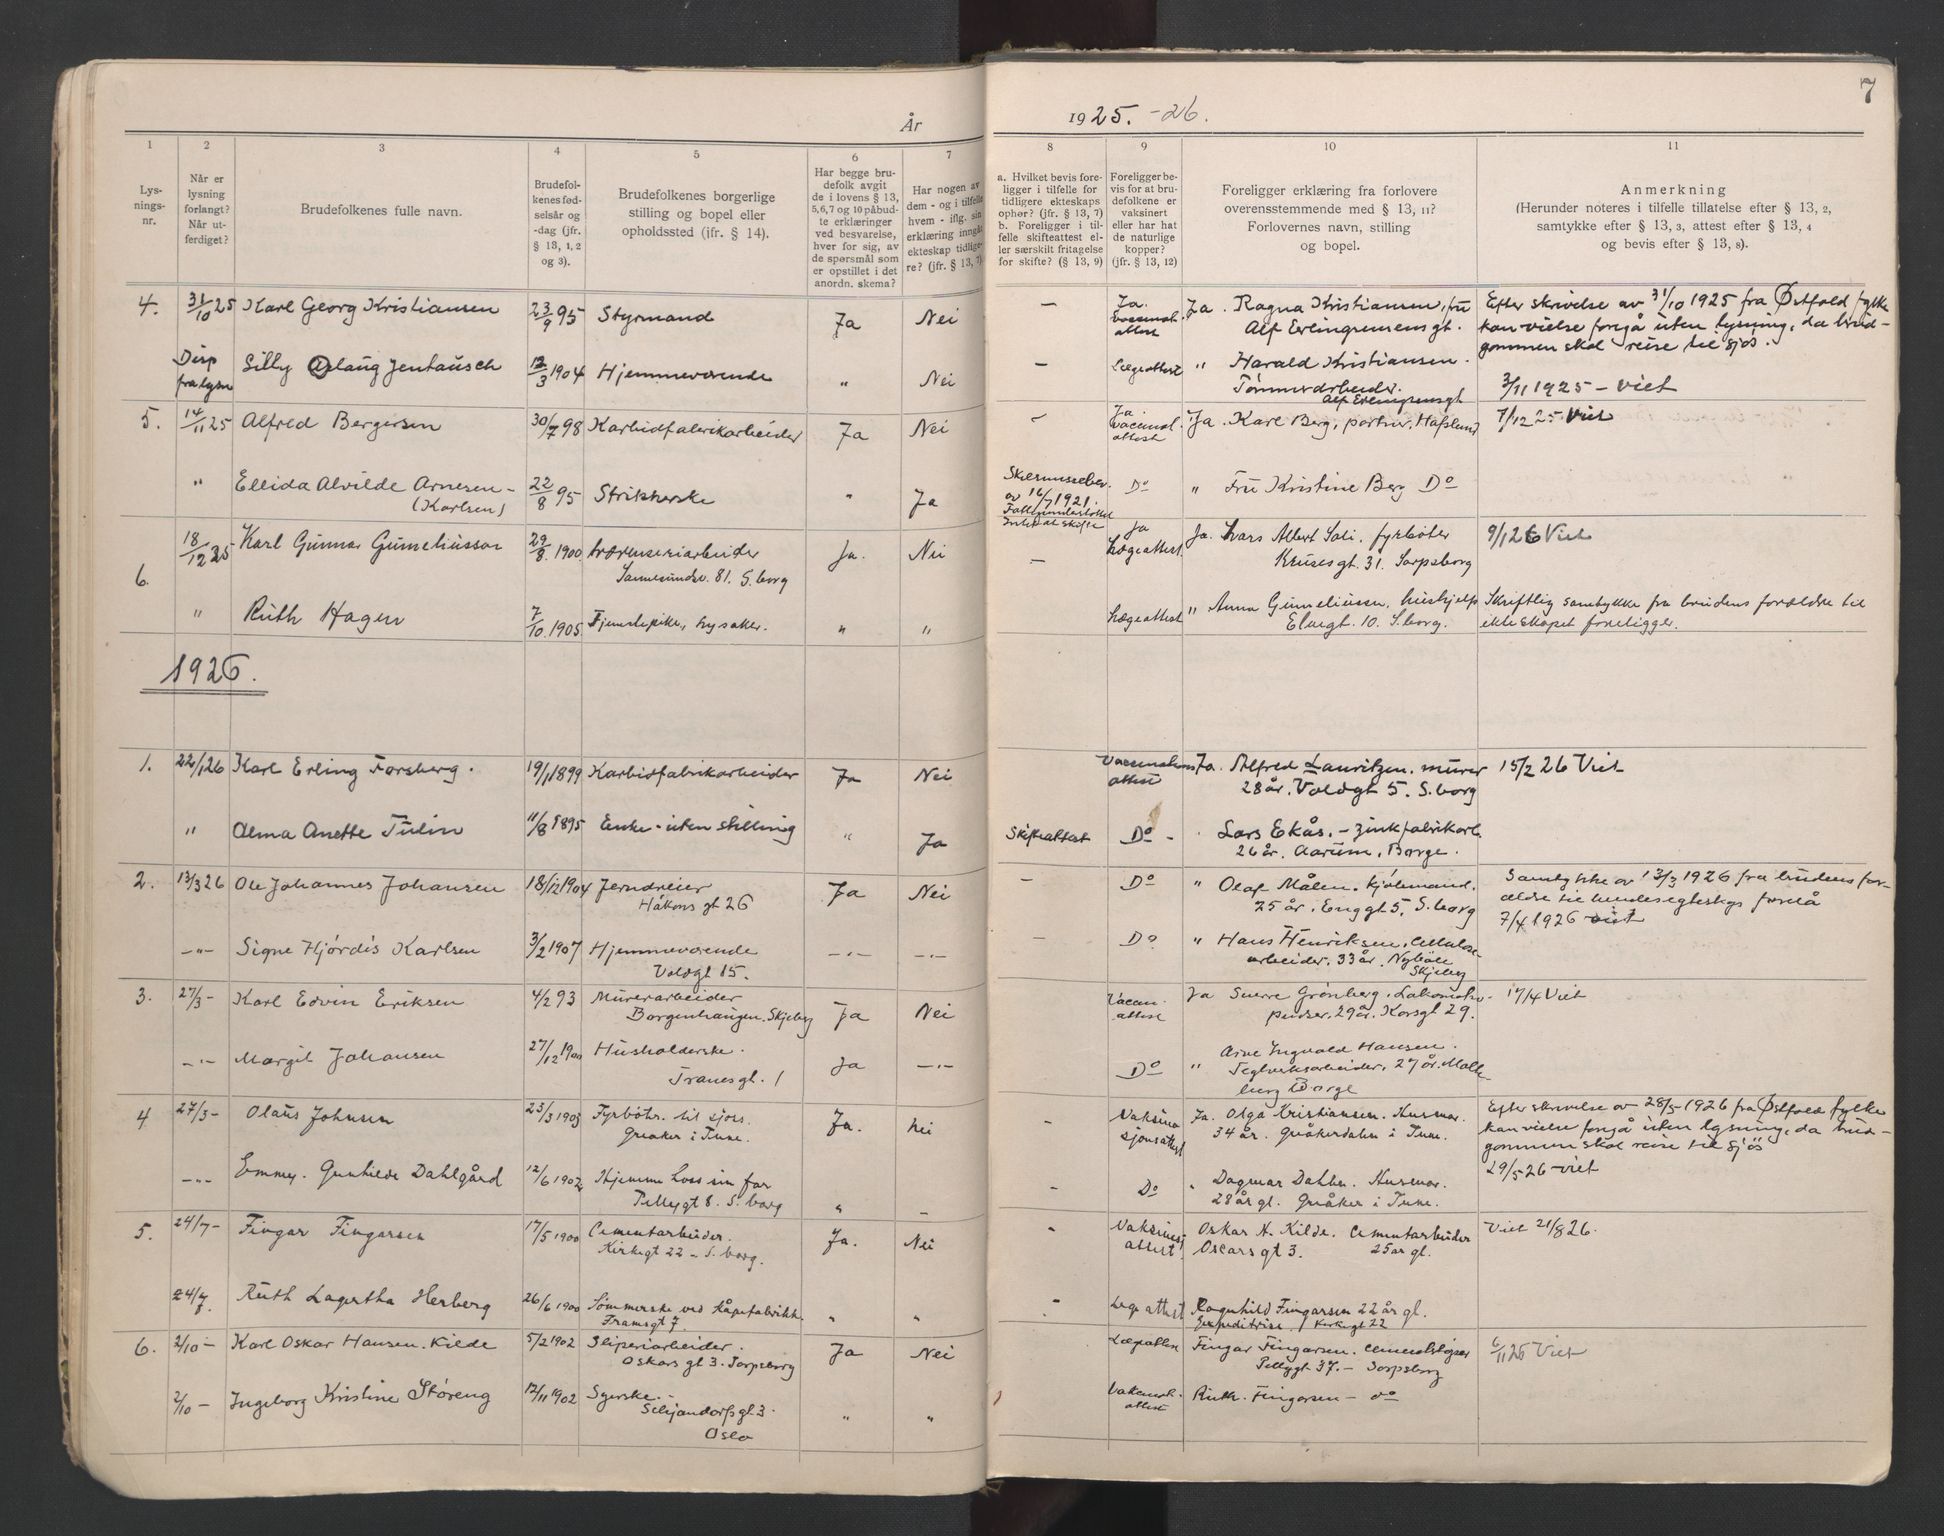 År
1925. -26.
7
1
2
3
4
5
6
7
8
9
10
11
Lys-
nings-
nr.
Når er
lysning
forlangt?
Når ut-
ferdiget?
Brudefolkenes fulle navn.
Brudefol-
kenes fød-
selsår og
-dag (jfr.
§ 13, 1, 2
og 3).
Brudefolkenes borgerlige
stilling og bopel eller
opholdssted (jfr. § 14).
Har begge bru-
defolk avgit
de i lovens § 13,
5, 6, 7 og 10 påbud-
te erklæringer
ved besvarelse,
hver for sig, av
de spørsmål som
er opstillet i det
anordn. skema?
Har nogen av
dem - og i tilfelle
hvem - iflg. sin
erklæring inngått
ekteskap tidlige-
re? (jfr. § 13, 7).
a. Hvilket bevis fore-
ligger i tilfelle for
tidligere ekteskaps
ophør? (jfr. § 13, 7)
b. Foreligger i til-
felle skifteattest el-
ler særskilt fritagelse
for skifte? (§ 13, 9)
Foreligger be-
vis for at bru-
defolkene er
vaksinert
eller har hat
de naturlige
kopper?
(jfr. § 13, 12)
Foreligger erklæring fra forlovere
overensstemmende med § 13, 11?
Forlovernes navn, stilling
og bopel.
Anmerkning
(Herunder noteres i tilfelle tillatelse efter § 13, 2,
samtykke efter § 13, 3, attest efter § 13, 4
og bevis efter § 13, 8).
4. 31/10 25 Karl Georg Kristiansen 23/9 95 Styrmand Ja Nei — Ja. Vaccinat. attest Ja. Ragna Kristiansen, fru
Alf Erlingsensgt.
Efter skrivelse av 31/10 1925 fra Østfold fylke
kan vielse foregå uten lysning, da brud-
gommen skal reise til sjøs.
Disp
fra lysn
Silly Aslaug Jenhausch 12/3 1904 Hjemmeværende " Nei — Lægeattest " Harald Kristiansen.
Tømmerarbeider.
Alf Erlingsensgt
3/11 1925 – viet
5. 14/11 25 Alfred Bergersen 30/7 98 Karbidfabrikarbeider Ja Nei - Ja. vaccinat. attest Ja. Karl Berg, portner, Hafslund 7/12 25 Viet
" Ellida Alvilde Arnesen -
(Karlsen)
22/8 95 Strikkerske " Ja
av 16/7 1921.
Do " Fru Kristine Berg Do
6. 18/12 25 Karl Gunnar Gumeliusson 29/8. 1900
Sannesundsv. 81. S.borg
Ja. Nei — Ja Lægeattest Ja. Lars Albert Sali. fyrbøter
Krusesgt. 31. Sarpsborg
9/1 26 Viet
" Ruth Hagen 7/10. 1905 Tjenestepike, Lysaker. " " Lægeattest " Anna Gumeliussen, hushjelp
Elvegt. 10. S.borg.
Skriftlig samtykke fra brudens forældre til
ekteskapet foreligger.
1926.
1. 22/1 26 Karl Erling Forsberg. 19/1 1899 Karbidfabrikarbeider Ja Nei Vaccinations attest Ja. Alfred Lauritzen. murer
28 år. Voldgt 5. S.borg
15/2 26 Viet
" Alma Anette Tulin 11/8 1895 Enke - uten stilling " Ja Skifteattest Do - Lars Ekås. - zinkfabrikarb.
26 år. Aarum, Borge.
2. 13/3 26 Ole Johannes Johansen 18/12 1904 Jerndreier
Håkons gt 26
Ja Nei — Do " Olaf Målen. kjølmand.
25 år. Enggt 5. S.borg
Samtykke av 13/3 1926 fra brudens for-
ældre til hendes egteskap forelå
7/4 1926 viet
—"— Signe Hjørdis Karlsen 3/2 1907 Hjemmeværende
Voldgt 15.
—"— —"— — Do " Hans Henriksen, Cellulose-
arbeider. 33 år. Nybøle
Skjeberg
3. 27/3 - Karl Edvin Eriksen 4/2 93 Murerarbeider
Borgenhaugen. Skjeberg
Ja Nei Vaccin. attest Ja Sverre Grønberg. Lokomotiv-
pudser. 29 år. Korsgt 29.
17/4 Viet
—"— Margit Johansen 27/12 1900 Husholderske.
Tranesgt. 1
Ja —"— Do " Arne Ingvald Hansen.
Teglverksarbeider. 27 år. Molle-
berg Borge
4 27/3 - Olaus Johnsen 23/3 1903 Fyrbøter. til sjøss.
Greåker i Tune.
Ja. Nei - Vaksina sjonsattest Ja. Olga Kristiansen. Husmor.
34 år. Greåkerdalen i Tune.
Efter skrivelse av 28/5 1926 fra Østfold fylke
kan vielse foregå uten lysning, da brud-
gommen skal reise til sjøs
29/5 26 – viet
—"— Emmy. Gunhilde Dahlgård 12/6 1902 Hjemme hos sin far
Pellygt 8. S.borg
" — - Do " Dagmar Dahlen. Husmor.
28 år gl. Greåker i Tune.
5. 24/7 - Fingar Fingarsen 17/5 1900 Cementarbeider.
Kirkegt 22 - S.borg.
Ja. Nei " Vaksines attest Oskar H. Kilde. Cementarbeider
Oscarsgt 3. 25 år gl.
Viet 21/8 26.
24/7 Ruth Lagertha Herberg 26/6 1900 Sømmerske ved Kåpefabrikk.
Framsgt 7.
" " " Lege attest Ragnhild Fingarsen 22 år gl.
Expeditrise / Kirkegt 22
6. 2/10 - Karl Oskar Hansen. Kilde 5/2 1902 Sliperiarbeider.
Oskars gt 3. Sarpsborg
Ja Nei Lægeattest Fingar Fingarsen. cementstøper
Pellygt 37. - Sarpsborg
6/11 26 Viet
2/10 - Ingeborg Kristine Støreng 12/11 1902 Syerske.
Oslo
" " Vaksinat. attest Ruth. Fingarsen - do